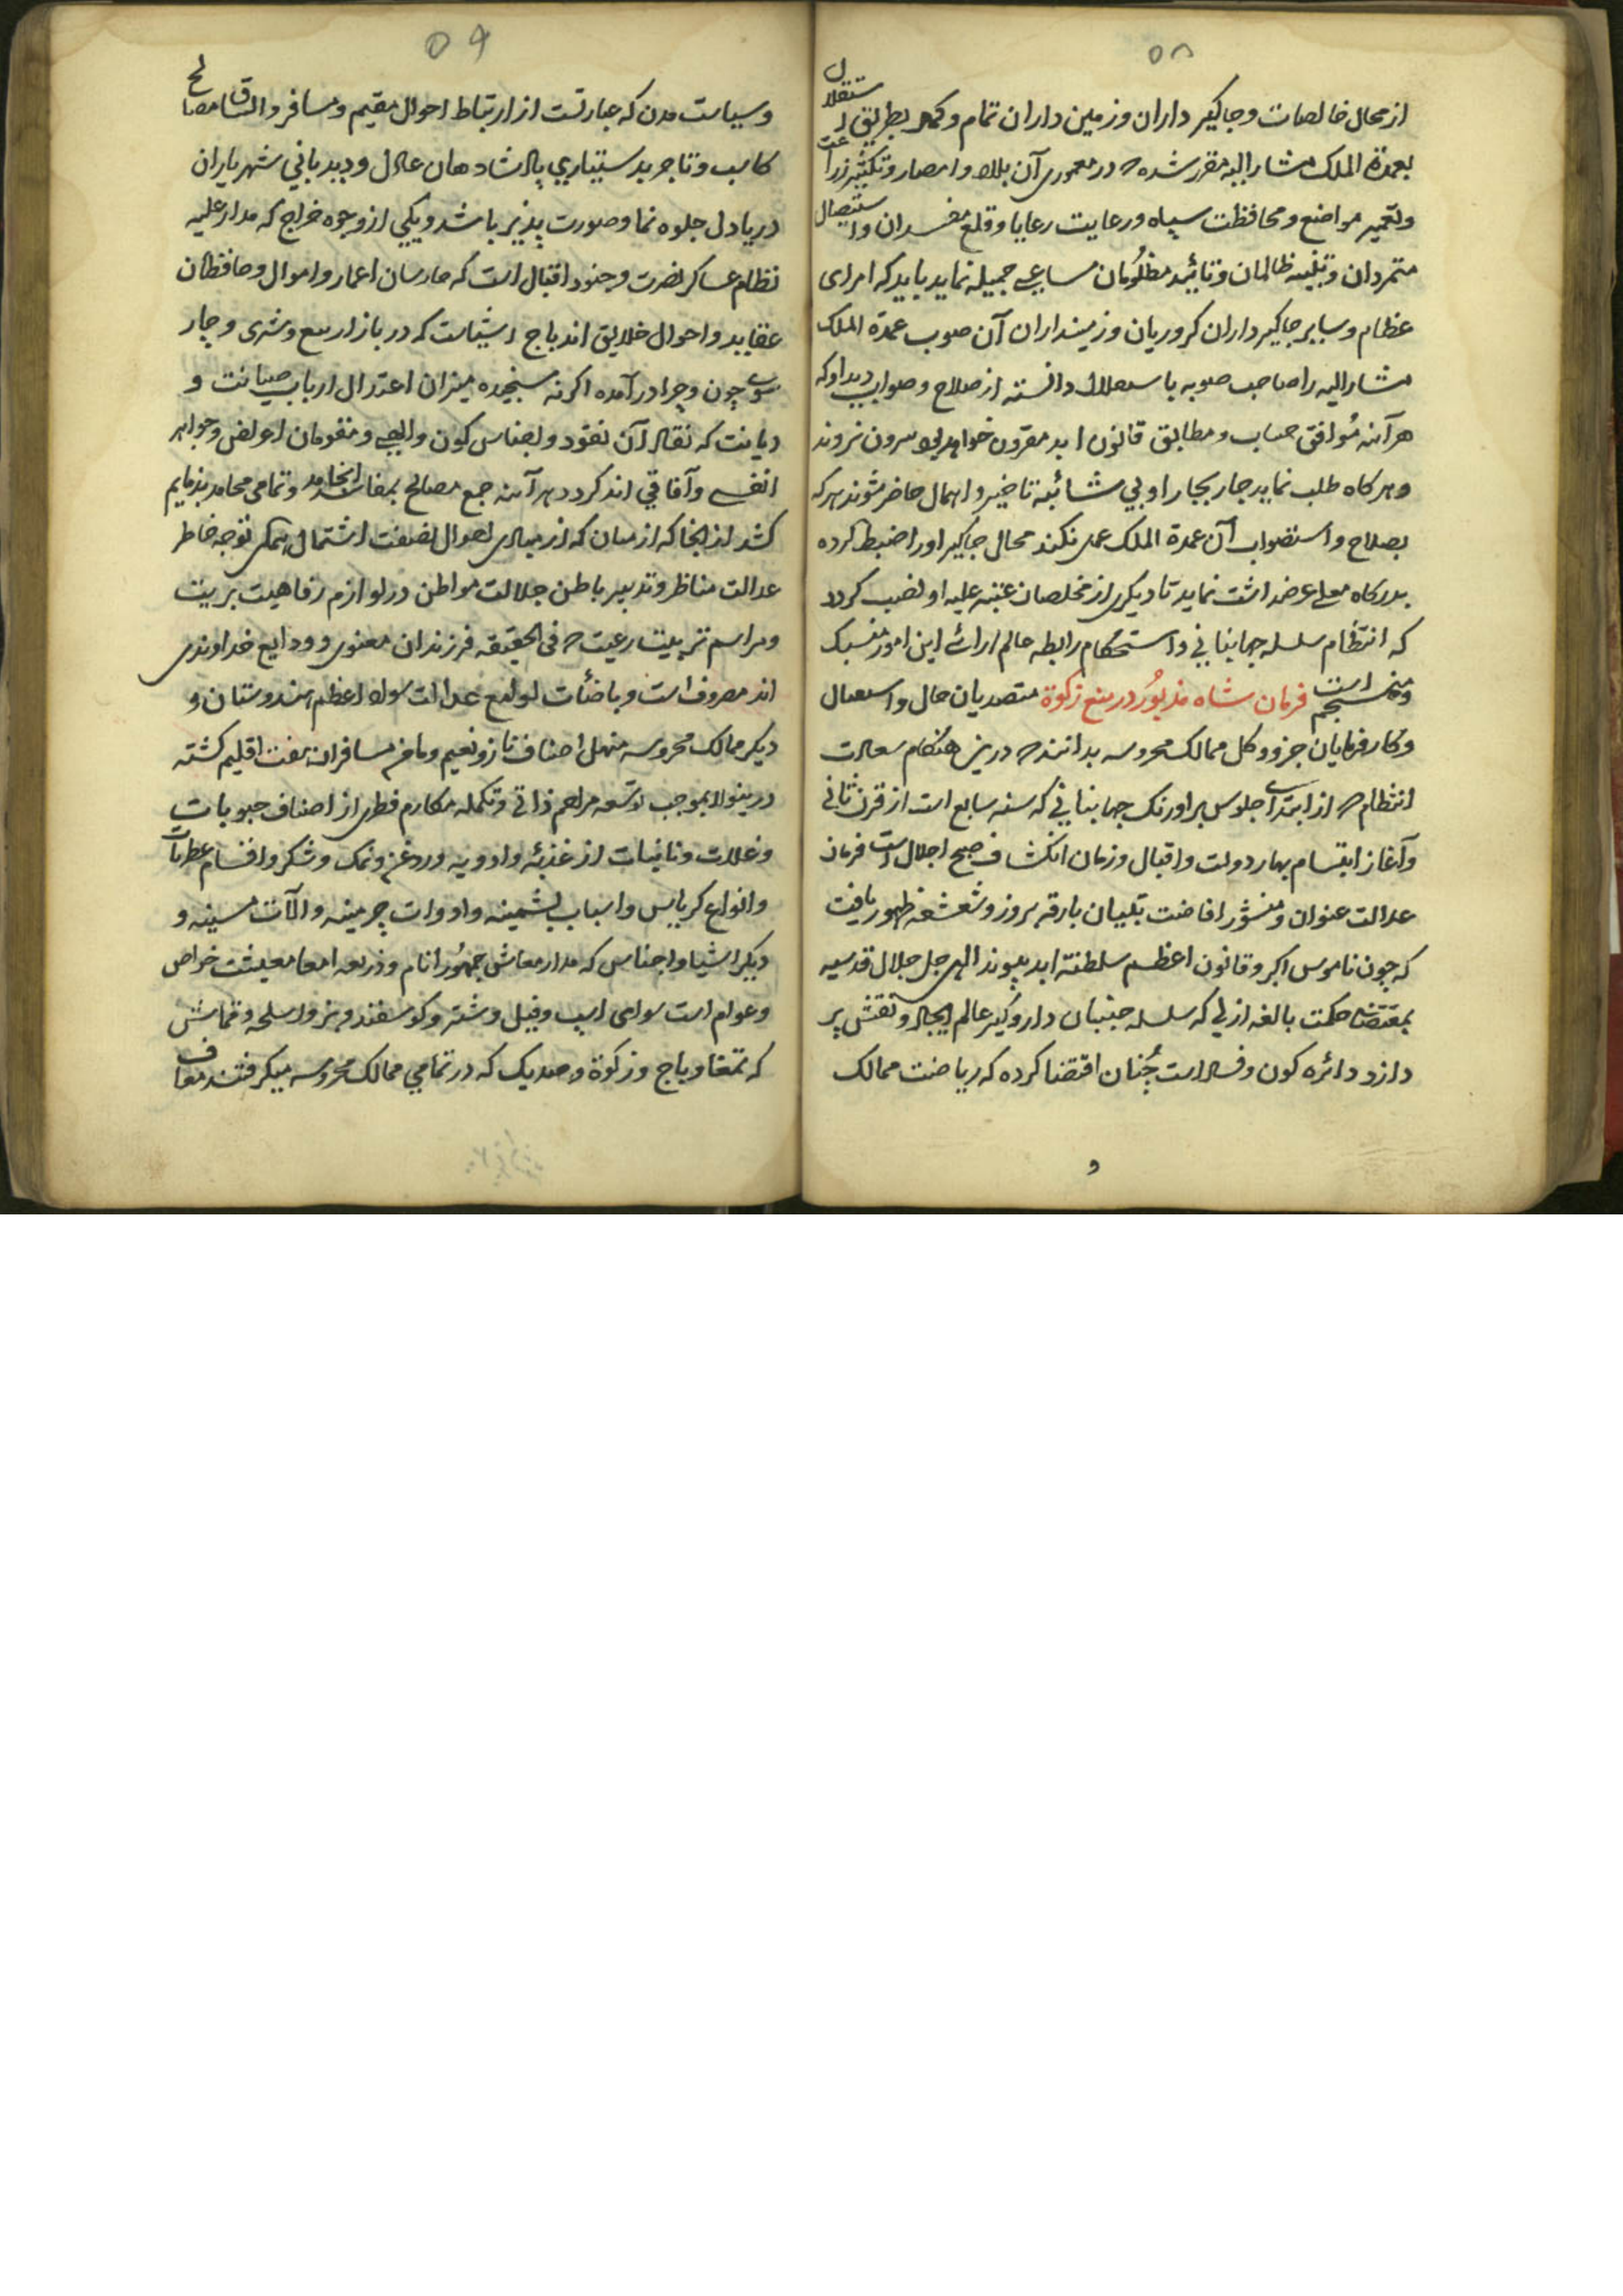 ۵۸
از محال خالصات و جاگیر داران و زمین داران تمام و کمال بطریق استقلال
بعمدة الملک مشار الیه مقرر شده که در معموری آن بلاد و امصار و تکثیر زراعت
و تعمیر مواضع و محافظت سپاه و رعایت رعایا و قلع مفسدان و استیصال
متمردان و تنبیه ظالمان و تائید مظلُومان مساعی جمیله نماید باید که امرای
عظام و سایر جاگیر داران کروریان و زمینداران آن صوب عمدة الملک
مشار الیه را صاحب صوبه باستعلال دانسته از صلاح و صواب دید او که
هر آینه مُوافق حساب و مطابق قانون ابد مقرون خواهد بود بیرون نروند
و هر کاه طلب نماید جار بجار او بی شائبه تاخیر و اهمال حاضر شوند هر که
بصلاح و استصواب آن عمدة الملک عمل نکند محال جاگیر او را ضبط کرده
بدرکاه معلی عرضداشت نماید تا دیکری از مخلصان عتبه علیه او نصب کردد
که انتظام سلسله جهانبانی و استحکام رابطه عالم ارائے این امور منسبک
و منسجم است فرمان شاه مذبُور در منع زکوة متصدیان حال و استعمال
و کارفرمایان جزو و کل ممالک محروسه بدانند که درین هنکام سعادت
انتظام که از ابتدای جلوس بر اورنک جهانبانی که سنه سابع است از قرن ثانی
و آغاز ابتسام بهار دولت و اقبال و زمان انکشاف صبح اجلال است فرمان
عدالت عنوان و منشُور افاضت تبیان بارقه بروز و شعشعه ظهور یافت
که چون ناموس اکبر و قانون اعظم سلطنة ابد پیوند الهی جل جلال قدسیه
بمقتضای حکمت بالغه ازلی که سلسله جنبان دار و کیر عالم ایجاد و نقش پر
دازد دائره کون و فساد است چُنان اقتضا کرده که ریاضت ممالک
و
۵۹
و سیاست مدن که عبارتست از ارتباط احوال مقیم و مسافر و اتساق مصالح
کاسب و تاجر بدستیاری پادشاهان عادل و دیدبانی شهریاران
دریا دل جلوه نما و صورت پذیر باشد و یکی از وجوه خراج که مدار علیه
نظام عساکر نصرت و جنود اقبال است که حارسان اعمار و اموال و حافظان
عقاید و احوال خلایق اند باج اشیاست که در بازار بیع و شری و چار
سوی چون و چرا در آمده اکر نه سنجیده میزان اعتدال ارباب صیانت و
دیانت که نقاد آن نقود و اجناس کون و الهی و مقومان اعراض و جواهر
انفسی و آفاقی اند کردد هر آینه جمع مصالح بمفاسد انجامد و تمامی محامد بذمایم
کشد از انجا که از میان که از مبادی احوال نصفت اشتمال همکی توجه خاطر
عدالت مناظر و تدبیر باطن جلالت مواطن در لوازم رفاهیت بریت
و مراسم تربیت رعیت که فی الحقیقه فرزندان معنوی و ودایع خداوندی
اند مصروف است و باضائات لوامع عدالت سواد اعظم هندوستان و
دیکر ممالک محروسه منهل اصناف ناز و نعیم و مامن مسافران هفت اقلیم کشته
درینولا بموجب توسعه مراحم ذاتی و تکمله مکارم فطری از اصناف حبوبات
و غلات و نانیات از غذیه و ادویه و روغن و نمک و شکر و اقسام عطریات
و انواع کرباس و اسباب پشمینه و ادوات چرمینه و الآت مسینه و
دیکر اشیا و اجناس که مدار معاش جمهُور انام و ذریعه امعا معیشت خواص
و عوام است سوای اسپ و فیل و شتر و کوسفند و بز و اسلحه و قماش
که تمغا و باج و زکوة و صدیک که در تمامی ممالک محروسه میکرفتند معاف